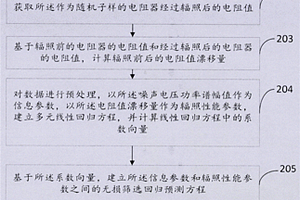 获取所述作为随机子样的电阻器经过辐照后的电阻值
203
基于辐照前的电阻器的电阻值和经过辐照后的电阻器
的电阻值，计算辐照前后的电阻值漂移量
204
对数据进行预处理，以所述噪声电压功率谱幅值作为
信息参数，以所述电阻值漂移量作为辐照性能参数，
建立多元线性回归方程，并计算线性回归方程中的系
数向量
205
基于所述系数向量，建立所述信息参数和辐照性能参
数之间的无损筛选回归预测方程